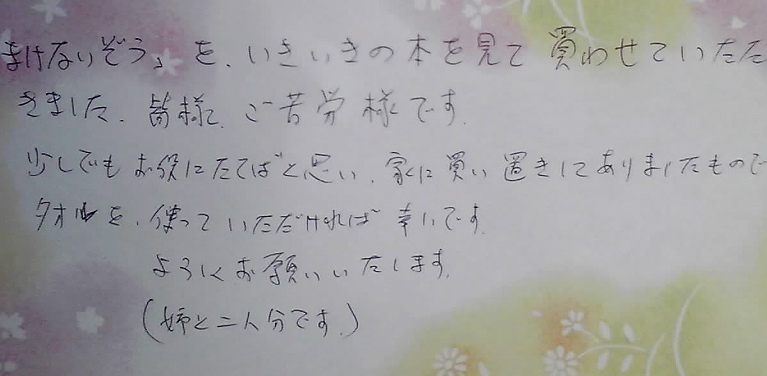 まけないぞう」を、いきいきの本を見て買わせていただ
きました。皆様、ご苦労様です。
少しでもお役にたてばと思い、家に買い置きしてありましたもので
タオルを、使っていただければ幸いです。
よろしくお願いいたします。
(姉と二人分です。)